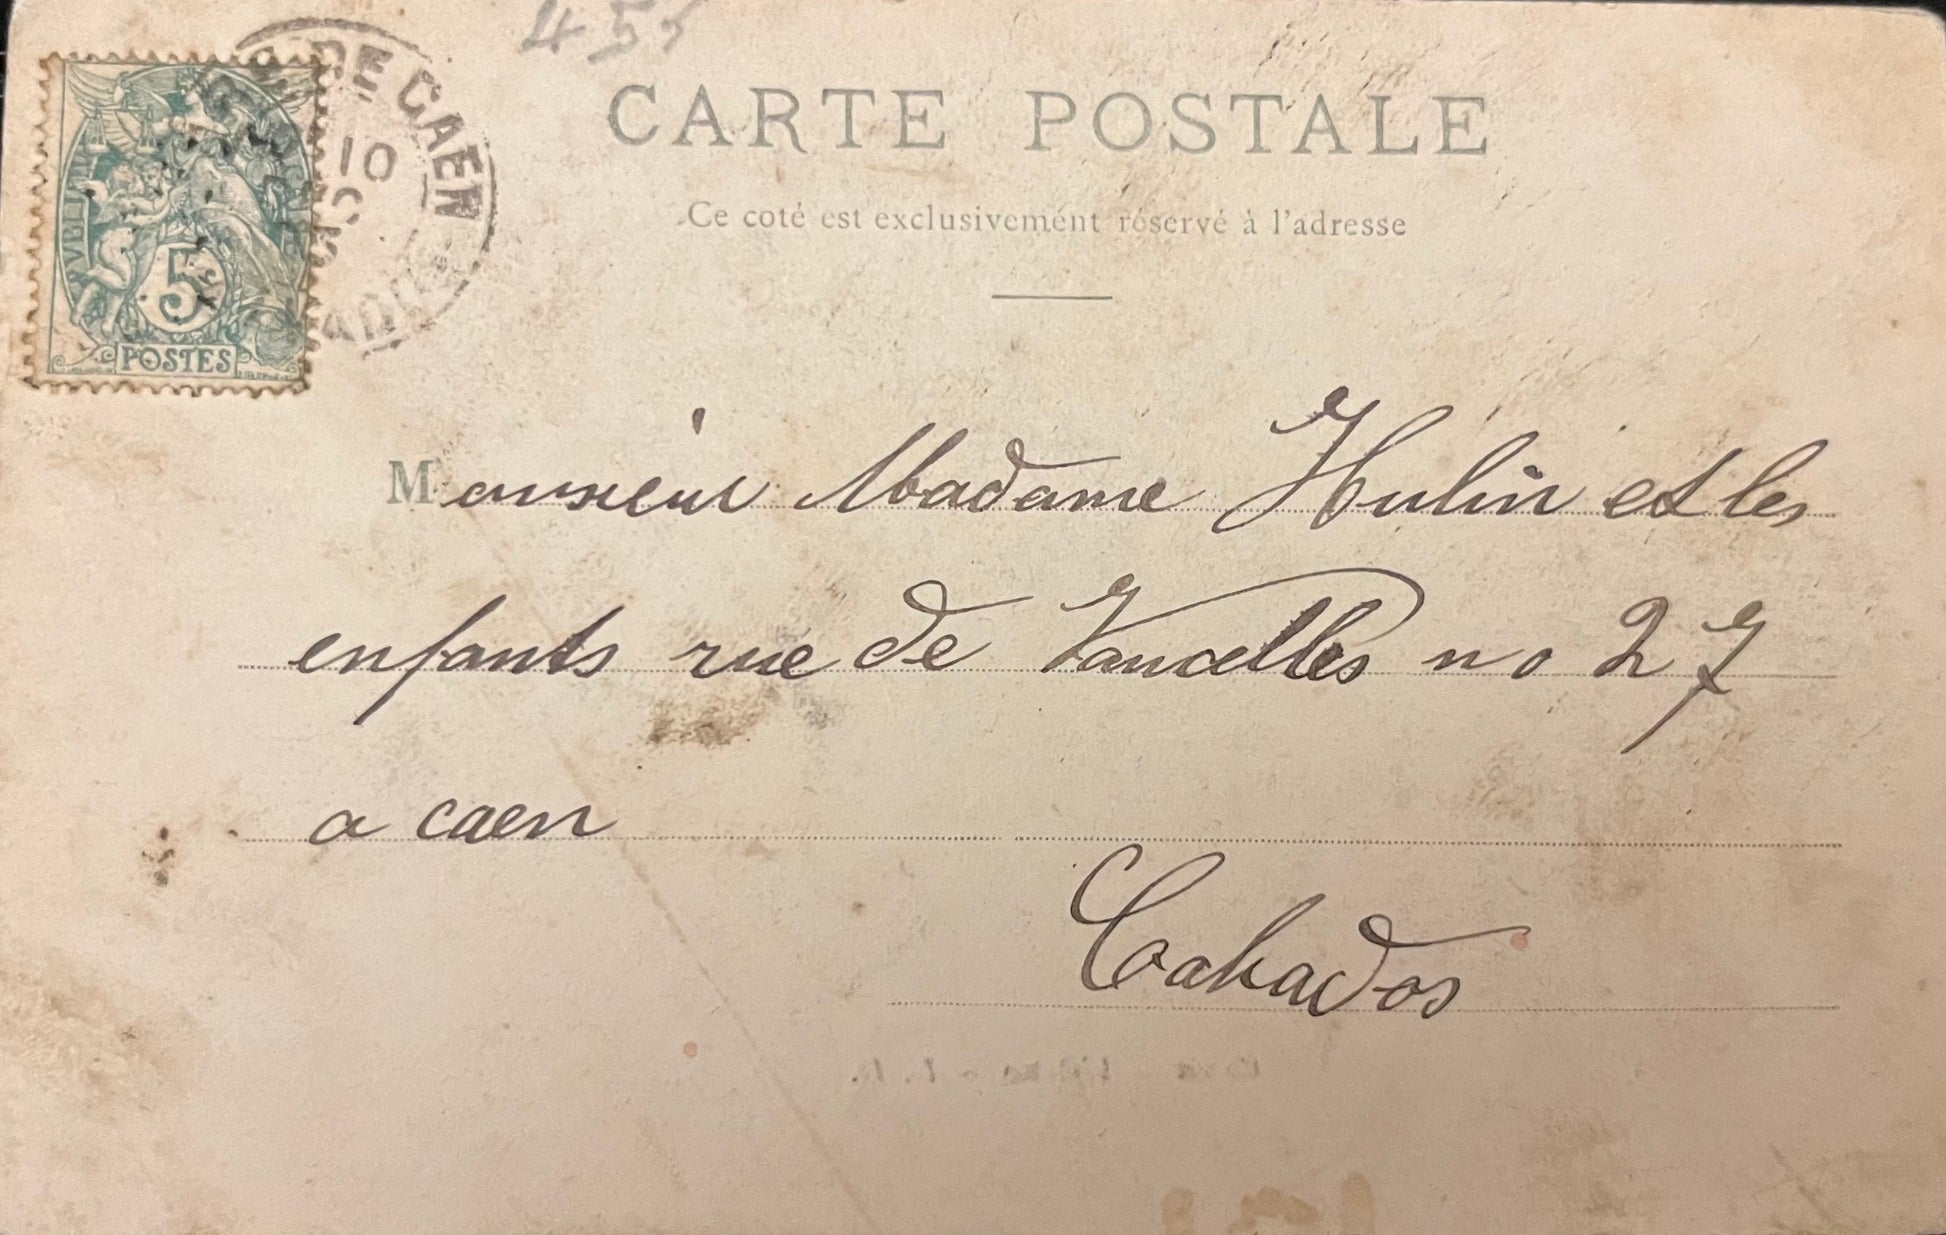 455
CARTE POSTALE
Ce coté est exclusivement réservé à l'adresse
DE CAEN
10
5
POSTES
Monsieur Madame Hulin et les
enfants rue de Vaucelles no 27
a caen
Calvados